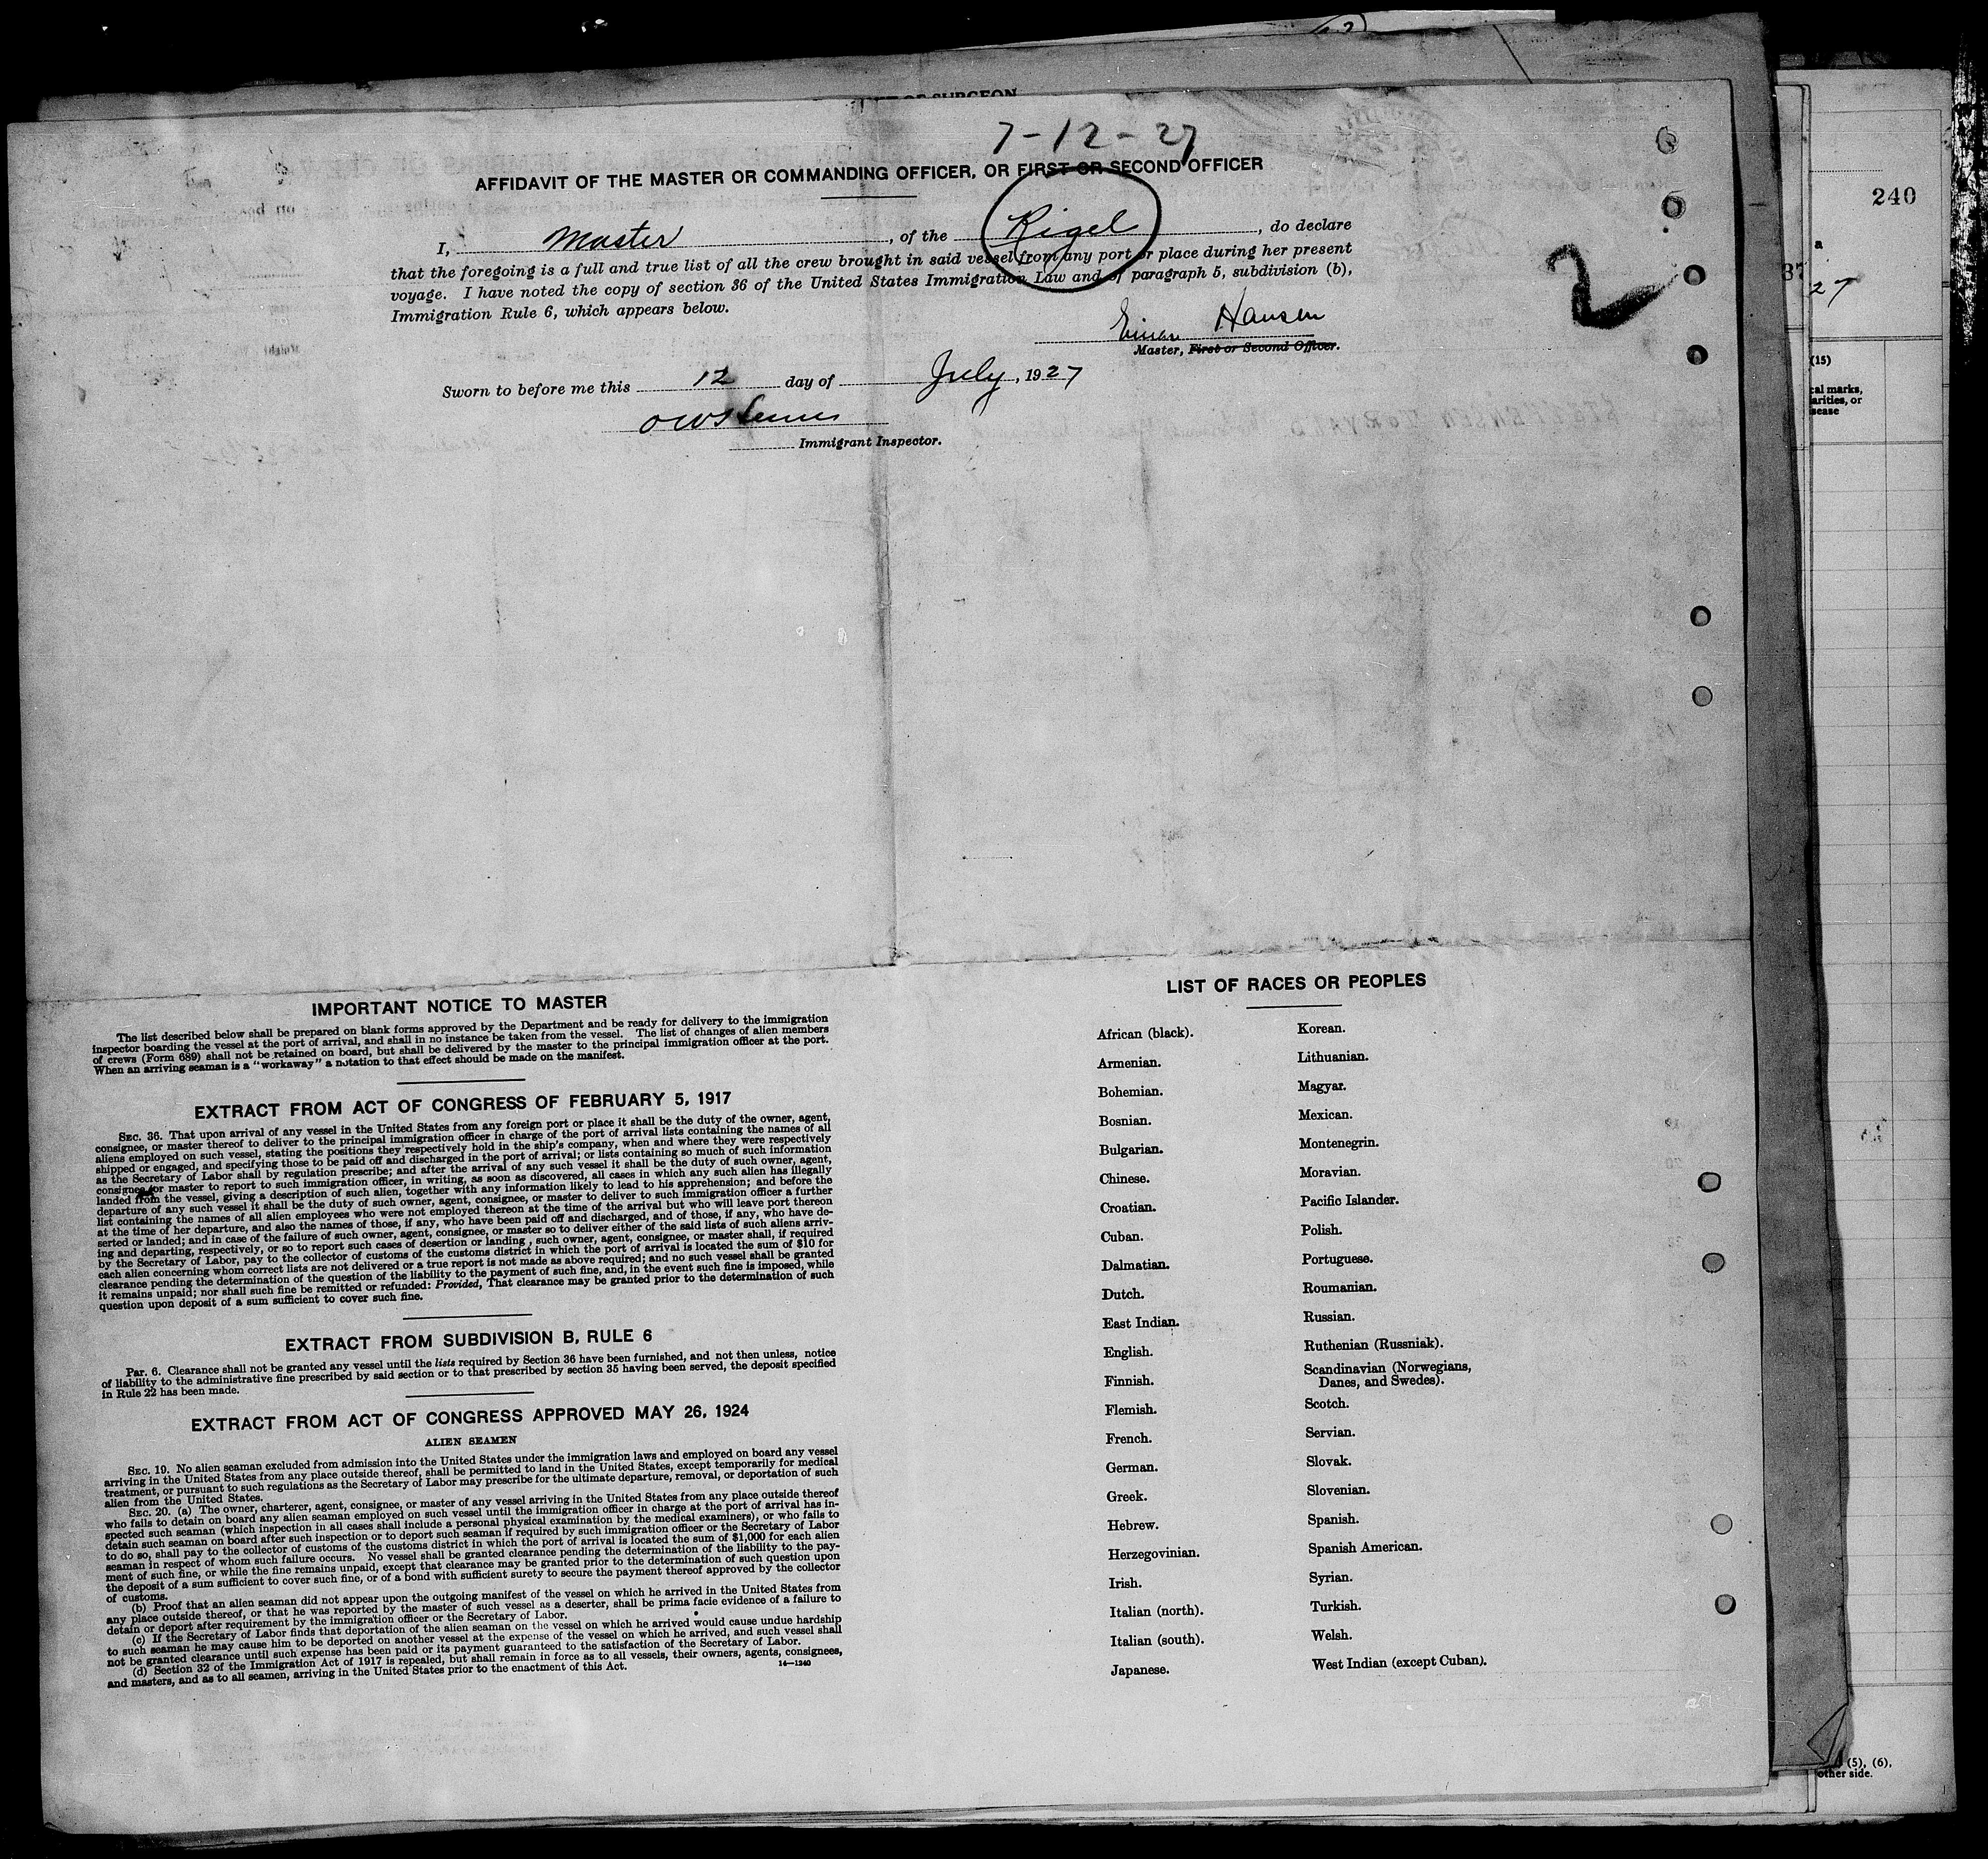 OF SURGEON
7-12-27
AFFIDAVIT OF THE MASTER OR COMMANDING OFFICER, OR FIRST OR SECOND OFFICER
I, Master, of the Rigel, do declare
that the foregoing is a full and true list of all the crew brought in said vessel from any port or place during her present
voyage. I have noted the copy of section 36 of the United States Immigration Law and of paragraph 5, subdivision (b),
Immigration Rule 6, which appears below.
Einar Hansen
Master, First or Second Officer.
Sworn to before me this 12 day of July, 1927
Immigrant Inspector.
2
IMPORTANT NOTICE TO MASTER
The list described below shall be prepared on blank forms approved by the Department and be ready for delivery to the immigration
inspector boarding the vessel at the port of arrival, and shall in no instance be taken from the vessel. The list of changes of alien members
of crews (Form 689) shall not be retained on board, but shall be delivered by the master to the principal immigration officer at the port.
When an arriving seaman is a "workaway" a notation to that effect should be made on the manifest.
EXTRACT FROM ACT OF CONGRESS OF FEBRUARY 5, 1917
SEC. 36. That upon arrival of any vessel in the United States from any foreign port or place it shall be the duty of the owner, agent,
consignee, or master thereof to deliver to the principal immigration officer in charge of the port of arrival lists containing the names of all
aliens employed on such vessel, stating the positions they respectively hold in the ship's company, when and where they were respectively
shipped or engaged, and specifying those to be paid off and discharged in the port of arrival; or lists containing so much of such information
as the Secretary of Labor shall by regulation prescribe; and after the arrival of any such vessel it shall be the duty of such owner, agent,
consignee, or master to report to such immigration officer, in writing, as soon as discovered, all cases in which any such alien has illegally
landed from the vessel, giving a description of such alien, together with any information likely to lead to his apprehension; and before the
departure of any such vessel it shall be the duty of such owner, agent, consignee, or master to deliver to such immigration officer a further
list containing the names of all alien employees who were not employed thereon at the time of the arrival but who will leave port thereon
at the time of her departure, and also the names of those, if any, who have been paid off and discharged, and of those, if any, who have de-
serted or landed; and in case of the failure of such owner, agent, consignee, or master so to deliver either of the said lists of such aliens arriv-
ing and departing, respectively, or so to report such cases of desertion or landing, such owner, agent, consignee, or master shall, if required
by the Secretary of Labor, pay to the collector of customs of the customs district in which the port of arrival is located the sum of $10 for
each alien concerning whom correct lists are not delivered or a true report is not made as above required; and no such vessel shall be granted
clearance pending the determination of the question of the liability to the payment of such fine, and, in the event such fine is imposed, while
it remains unpaid; nor shall such fine be remitted or refunded: Provided, That clearance may be granted prior to the determination of such
question upon deposit of a sum sufficient to cover such fine.
EXTRACT FROM SUBDIVISION B, RULE 6
Par. 6. Clearance shall not be granted any vessel until the lists required by Section 36 have been furnished, and not then unless, notice
of liability to the administrative fine prescribed by said section or to that prescribed by section 35 having been served, the deposit specified
in Rule 22 has been made.
EXTRACT FROM ACT OF CONGRESS APPROVED MAY 26, 1924
ALIEN SEAMEN
SEC. 19. No alien seaman excluded from admission into the United States under the immigration laws and employed on board any vessel
arriving in the United States from any place outside thereof, shall be permitted to land in the United States, except temporarily for medical
treatment, or pursuant to such regulations as the Secretary of Labor may prescribe for the ultimate departure, removal, or deportation of such
alien from the United States.
SEC. 20. (a) The owner, charterer, agent, consignee, or master of any vessel arriving in the United States from any place outside thereof
who fails to detain on board any alien seaman employed on such vessel until the immigration officer in charge at the port of arrival has in-
spected such seaman (which inspection in all cases shall include a personal physical examination by the medical examiners), or who fails to
detain such seaman on board after such inspection or to deport such seaman if required by such immigration officer or the Secretary of Labor
to do so, shall pay to the collector of customs of the customs district in which the port of arrival is located the sum of $1,000 for each alien
seaman in respect of whom such failure occurs. No vessel shall be granted clearance pending the determination of the liability to the pay-
ment of such fine, or while the fine remains unpaid, except that clearance may be granted prior to the determination of such question upon
the deposit of a sum sufficient to cover such fine, or of a bond with sufficient surety to secure the payment thereof approved by the collector
of customs.
(b) Proof that an alien seaman did not appear upon the outgoing manifest of the vessel on which he arrived in the United States from
any place outside thereof, or that he was reported by the master of such vessel as a deserter, shall be prima facie evidence of a failure to
detain or deport after requirement by the immigration officer or the Secretary of Labor.
(c) If the Secretary of Labor finds that deportation of the alien seaman on the vessel on which he arrived would cause undue hardship
to such seaman he may cause him to be deported on another vessel at the expense of the vessel on which he arrived, and such vessel shall
not be granted clearance until such expense has been paid or its payment guaranteed to the satisfaction of the Secretary of Labor.
(d) Section 32 of the Immigration Act of 1917 is repealed, but shall remain in force as to all vessels, their owners, agents, consignees,
and masters, and as to all seamen, arriving in the United States prior to the enactment of this Act.
14—1240
LIST OF RACES OR PEOPLES
African (black).
Armenian.
Bohemian.
Bosnian.
Bulgarian.
Chinese.
Croatian.
Cuban.
Dalmatian.
Dutch.
East Indian.
English.
Finnish.
Flemish.
French.
German.
Greek.
Hebrew.
Herzegovinian.
Irish.
Italian (north).
Italian (south).
Japanese.
Korean.
Lithuanian.
Magyar.
Mexican.
Montenegrin.
Moravian.
Pacific Islander.
Polish.
Portuguese.
Roumanian.
Russian.
Ruthenian (Russniak).
Scandinavian (Norwegians,
Danes, and Swedes).
Scotch.
Servian.
Slovak.
Slovenian.
Spanish.
Spanish American.
Syrian.
Turkish.
Welsh.
West Indian (except Cuban).
240
27
(15)
cal marks,
arities, or
sease
(5), (6),
other side.